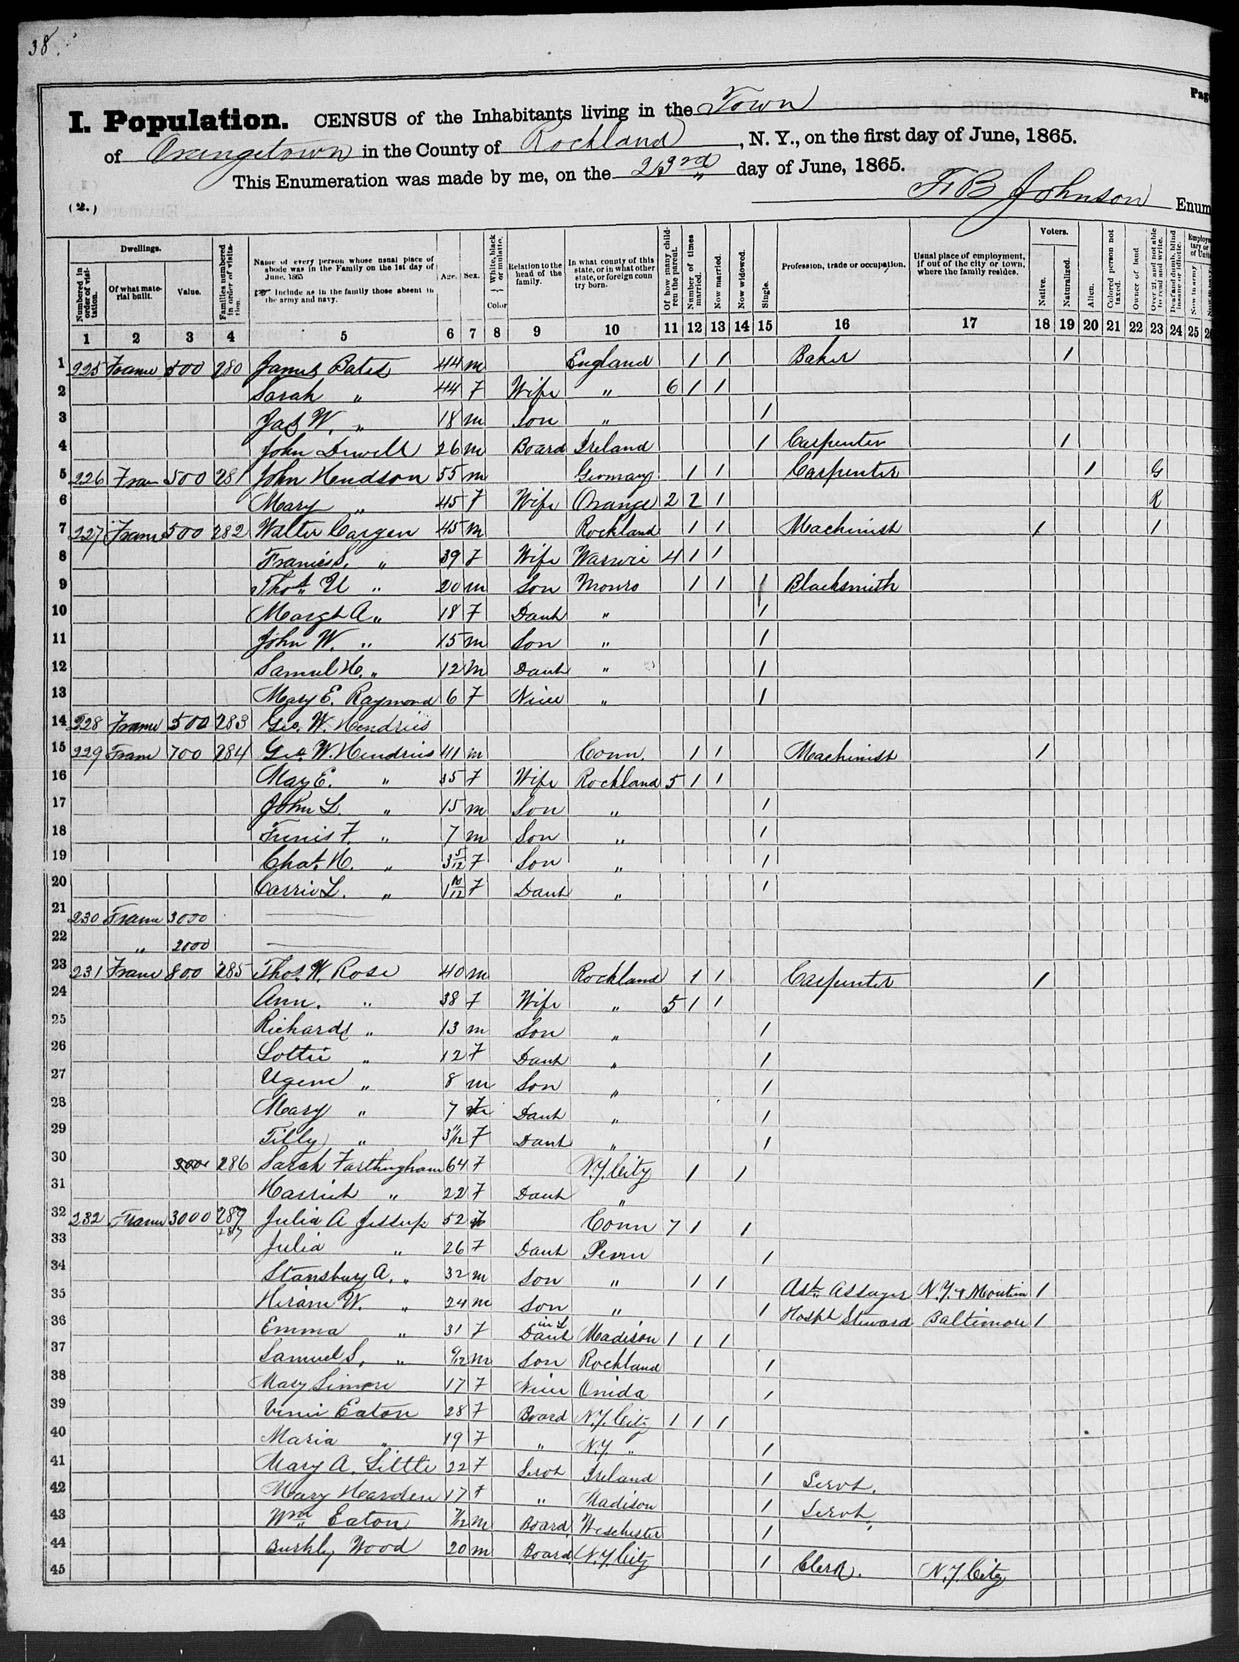 38.
Page
I. Population. CENSUS of the Inhabitants living in the Town
of Orangetown in the County of Rockland, N. Y., on the first day of June, 1865.
This Enumeration was made by me, on the 23rd day of June, 1865.
F B Johnson Enum
(2.)
Dwellings. Voters.
Numbered in order of visitation. Of what material built. Value. Families numbered in order of visitation. Name of every person whose usual place of abode was in the Family on the 1st day of June, 1865 Include as in the family those absent in the army and navy. Age. Sex. White, black or mulatto. Color Relation to the head of the family. In what county of this state, or in what other state, or foreign country born. Of how many children the parent. Number of times married. Now married. Now widowed. Single. Profession, trade or occupation. Usual place of employment, if out of the city or town, where the family resides. Native. Naturalized. Alien. Colored person not taxed. Owner of land Over 21, and not able to read and write. Deaf and dumb, blind insane or idiotic. Now in army
1 2 3 4 5 6 7 8 9 10 11 12 13 14 15 16 17 18 19 20 21 22 23 24 25 26
1 225 Frame 500 280 James Bates 44 m England 1 1 Baker 1
2 Sarah " 44 F Wife " 6 1 1
3 Jas W. " 18 m Son " 1
4 John 26 m Board Ireland 1 Carpenter 1
5 226 Fram 500 281 John Hendson 55 m Germany 1 1 Carpenter 1 G
6 Mary " 45 F Wife Orange 2 2 1 R
7 227 Frame 500 282 Walter Cargen 45 m Rockland 1 1 Machinist 1 1
8 Francis S. " 39 F Wife Warwic 4 1 1
9 Thos. U " 20 m Son Monro 1 1 1 Blacksmith
10 Margt A " 18 F Dauh " 1
11 John W. " 15 m Son " 1
12 Samuel H. " 12 m Dauh " 1
13 Mary E. Raymond 6 F Niece " 1
14 228 Frame 500 283 Geo. W. Hendrics
15 229 Fram 700 284 Geo. W. Hendrics 41 m Conn. 1 1 Machinist 1
16 May E. " 35 F Wife Rockland 5 1 1
17 John L. " 15 m Son " 1
18 Tunis F. " 7 m Son " 1
19 Chas. H. " 3 5/12 F Son " 1
20 Carrie L. " 1 10/12 F Dauh " 1
21 230 Frame 3000
22 " 2000
23 231 Frame 800 285 Thos. W. Rose 40 m Rockland 1 1 Carpenter 1
24 Ann. " 38 F Wife " 5 1 1
25 Richard " 13 m Son " 1
26 Lottie " 12 F Dauh " 1
27 Ugene " 8 m Son " 1
28 Mary " 7 F Dauh " 1
29 Tilly " 3 11/12 F Dauh " 1
30 286 Sarah Farthingham 64 F N.Y. City 1 1
31 Harriet " 22 F Dauh "
32 232 Frame 3000 287 Julia A Jessup 52 F Conn 7 1 1
33 Julia " 26 F Dauh Penn 1
34 Stansbury A. " 32 m Son " 1 1 Ast. Assayer N.Y. 1
35 Hiram W. " 24 m Son " 1 Hospt Steward Baltimore 1
36 Emma " 31 F Dauh in L Madison 1 1 1
37 Samuel S. " 9/12 m Son Rockland 1
38 Mary Simon 17 F Niece Onida 1
39 Eaton 28 F Board N.Y. City 1 1 1
40 Maria " 19 F " N.Y. " 1
41 Mary A. Little 22 F Servt Ireland 1 Servt.
42 Mary Harden 17 F " Madison 1 Servt.
43 Wm Eaton 7/12 m Board Weschester 1
44 Wood 20 m Board N.Y. City 1 Clerk. N.Y. City
45